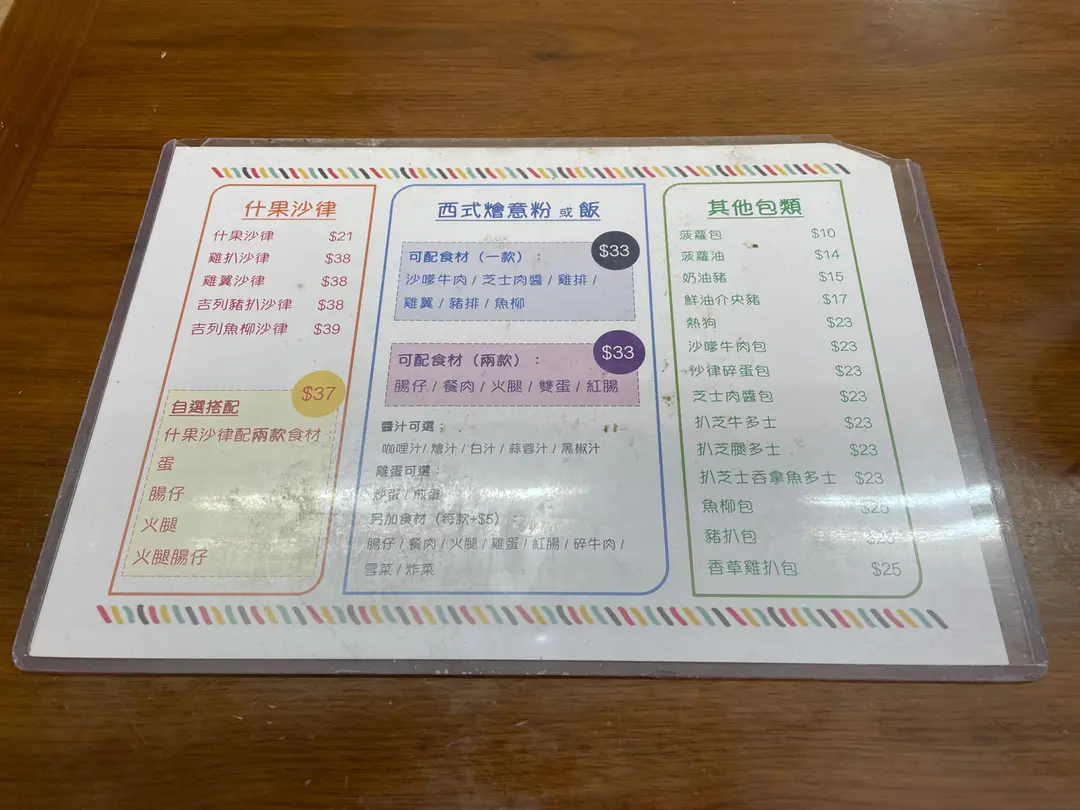 什果沙律
什果沙律 $21
雞扒沙律 $38
雞翼沙律 $38
吉列豬扒沙律 $38
吉列魚柳沙律 $39
$37
自選搭配
什果沙律配兩款食材
蛋
腸仔
火腿
火腿腸仔
西式燴意粉 或 飯
$33
可配食材（一款）：
沙嗲牛肉 / 芝士肉醬 / 雞排 /
雞翼 / 豬排 / 魚柳
$33
可配食材（兩款）：
腸仔 / 餐肉 / 火腿 / 雙蛋 / 紅腸
醬汁可選：
咖喱汁 / 燴汁 / 白汁 / 蒜蓉汁 / 黑椒汁
雞蛋可選：
炒蛋 / 煎蛋
另加食材（每款+$5）：
腸仔 / 餐肉 / 火腿 / 雞蛋 / 紅腸 / 碎牛肉 /
雪菜 / 炸菜
其他包類
菠蘿包 $10
菠蘿油 $14
奶油豬 $15
鮮油介央豬 $17
熱狗 $23
沙嗲牛肉包 $23
沙律碎蛋包 $23
芝士肉醬包 $23
扒芝牛多士 $23
扒芝腿多士 $23
扒芝士吞拿魚多士 $23
魚柳包 $25
豬扒包 $25
香草雞扒包 $25